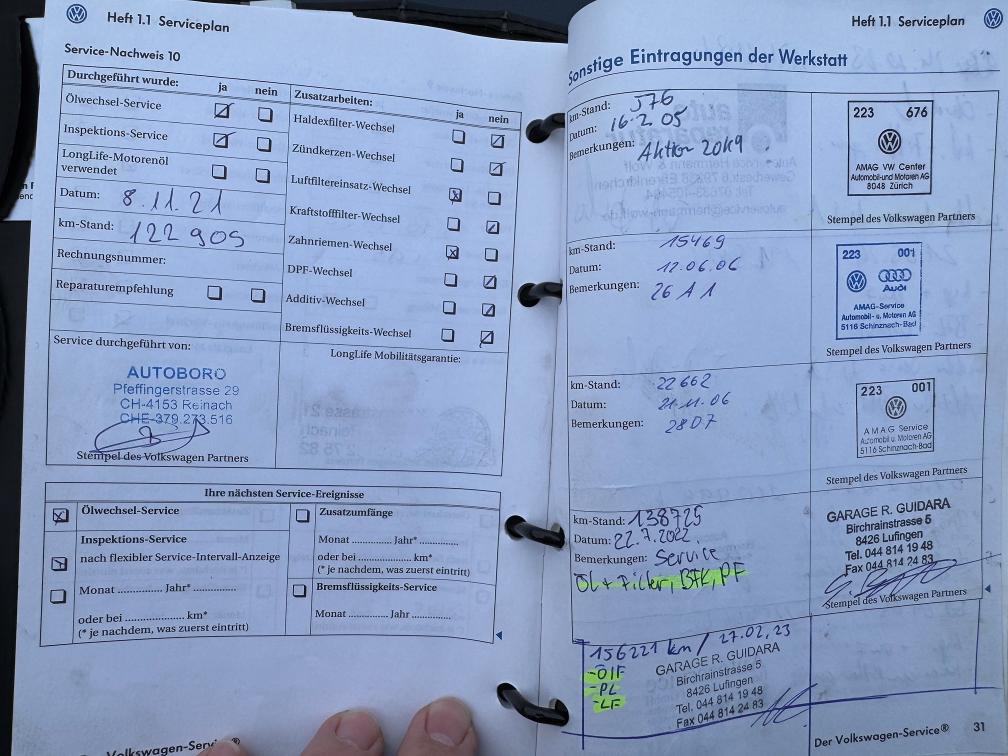 Heft 1.1 Serviceplan
Service-Nachweis 10
Durchgeführt wurde: ja nein
Ölwechsel-Service
Inspektions-Service
LongLife-Motorenöl
verwendet
Datum: 8.11.21
km-Stand: 122905
Rechnungsnummer:
Reparaturempfehlung
Zusatzarbeiten: ja nein
Haldexfilter-Wechsel
Zündkerzen-Wechsel
Luftfiltereinsatz-Wechsel
Kraftstofffilter-Wechsel
Zahnriemen-Wechsel
DPF-Wechsel
Additiv-Wechsel
Bremsflüssigkeits-Wechsel
Service durchgeführt von:
AUTOBORO
Pfeffingerstrasse 29
CH-4153 Reinach
CHE-379.273.516
Stempel des Volkswagen Partners
LongLife Mobilitätsgarantie:
Ihre nächsten Service-Ereignisse
Ölwechsel-Service
Inspektions-Service
nach flexibler Service-Intervall-Anzeige
Monat ............ Jahr* ..............
oder bei .................... km*
(* je nachdem, was zuerst eintritt)
Zusatzumfänge
Monat ............. Jahr* .............
oder bei .................... km*
(* je nachdem, was zuerst eintritt)
Bremsflüssigkeits-Service
Monat ............. Jahr .............
Volkswagen-Service®
Heft 1.1 Serviceplan
Sonstige Eintragungen der Werkstatt
km-Stand: 576
Datum: 16.2.05
Bemerkungen: Aktion 20K9.
223 676
AMAG VW Center
Automobil-und Motoren AG
8048 Zürich
Stempel des Volkswagen Partners
km-Stand: 15469
Datum: 12.06.06
Bemerkungen: 26 A 1
223 001
Audi
AMAG-Service
Automobil- u. Motoren AG
5116 Schinznach-Bad
Stempel des Volkswagen Partners
km-Stand: 22662
Datum: 21.11.06
Bemerkungen: 28D7
223 001
AMAG Service
Automobil u. Motoren AG
5116 Schinznach-Bad
Stempel des Volkswagen Partners
km-Stand: 138725
Datum: 22.7.2022
Bemerkungen: Service
Öl + Filter, BFK, PF
GARAGE R. GUIDARA
Birchrainstrasse 5
8426 Lufingen
Tel. 044 814 19 48
Fax 044 814 24 83
Stempel des Volkswagen Partners
156221 km / 27.02.23
-ÖlF
-PL
-LF
GARAGE R. GUIDARA
Birchrainstrasse 5
8426 Lufingen
Tel. 044 814 19 48
Fax 044 814 24 83
Der Volkswagen-Service® 31